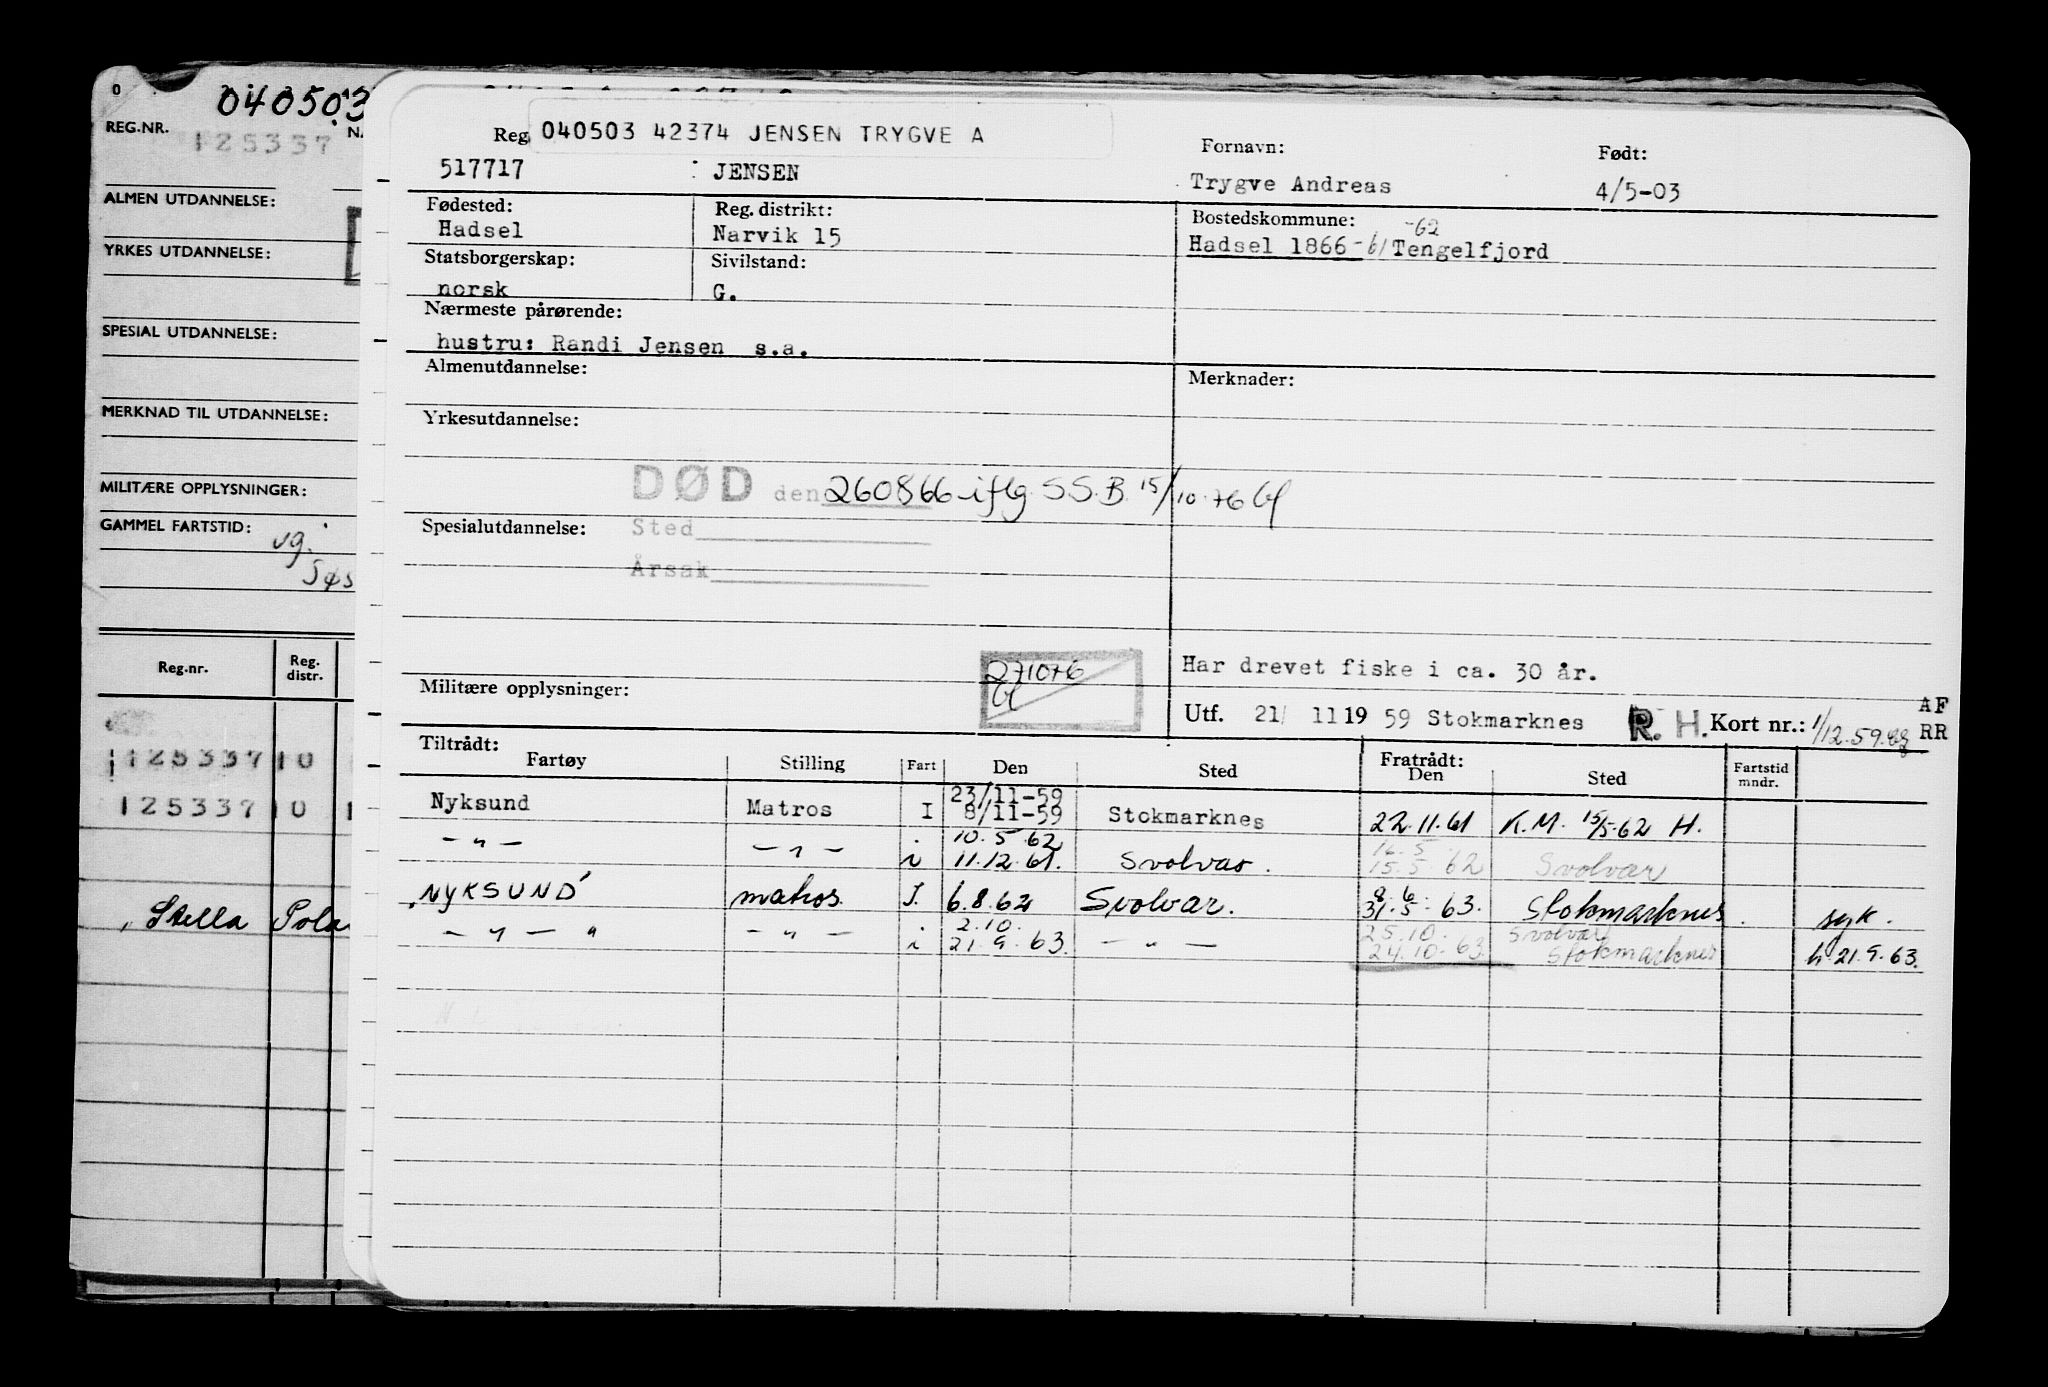 040503
REG.NR.
125337
ALMEN UTDANNELSE:
YRKES UTDANNELSE:
SPESIAL UTDANNELSE:
MERKNAD TIL UTDANNELSE:
MILITÆRE OPPLYSNINGER:
GAMMEL FARTSTID:
Reg.nr. Reg. distr.
125337 10
125337 10
Stella Pola
Reg. 040503 42374 JENSEN TRYGVE A
Fornavn: Født:
517717 JENSEN Trygve Andreas 4/5-03
Fødested: Reg. distrikt: Bostedskommune:
-62
Hadsel Narvik 15 Hadsel 1866-61 Tengelfjord
Statsborgerskap: Sivilstand:
norsk G.
Nærmeste pårørende:
hustru: Randi Jensen s.a.
Almenutdannelse: Merknader:
Yrkesutdannelse:
DØD den 260866 iflg. S.S.B. 15/10.76
Spesialutdannelse: Sted
Årsak
271076
Har drevet fiske i ca. 30 år.
Militære opplysninger:
Utf. 21/ 11 19 59 Stokmarknes R. H. Kort nr.: 1/12.59. AF RR
Tiltrådt: Fratrådt:
Fartøy Stilling Fart Den Sted Den Sted Fartstid mndr.
23/11-59
Nyksund Matros I 8/11-59 Stokmarknes 22.11.61 K.M. 15/5-62 H.
10.5.62 16.5
-"- -"- i 11.12.61. Svolvær. 15.5.62 Svolvær
8.6
"NYKSUND" matros. I. 6.8.62 Svolvær. 31.5.63. Stokmarknes. syk.
2.10. 25.10. Svolvær
-"-"- -"- i 21.9.63. -"- 24.10.63. Stokmarknes h. 21.9.63.